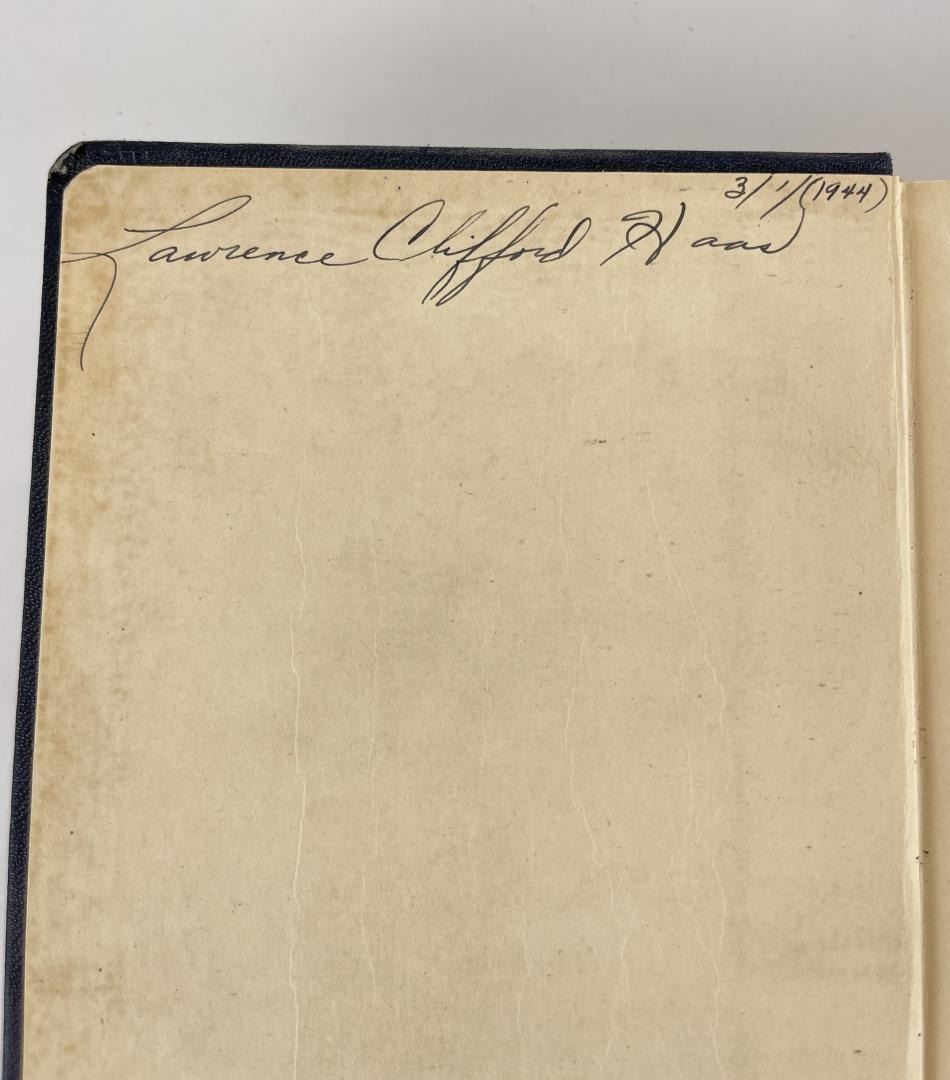 3/1/(1944)
Lawrence Clifford Haas